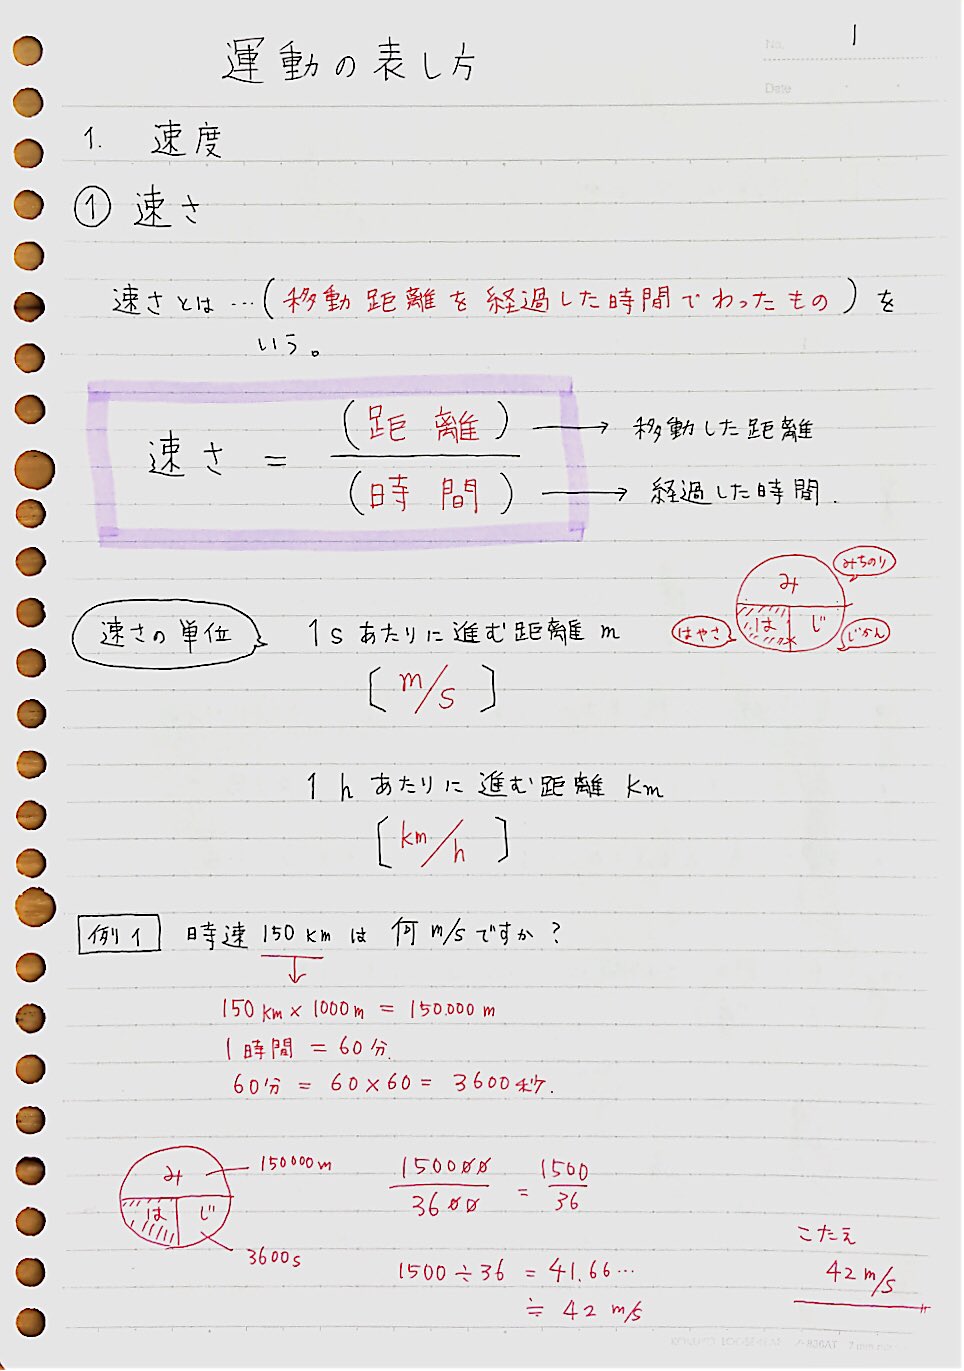 No. 1
Date
運動の表し方
1. 速度
① 速さ
速さとは…(移動距離を経過した時間でわったもの)を
いう。
速さ = (距離) → 移動した距離
(時間) → 経過した時間.
み みちのり
は じ
はやさ じかん
速さの単位 1sあたりに進む距離m
[m/s]
1hあたりに進む距離km
[km/h]
例1 時速150kmは何m/sですか?
↓
150km×1000m=150.000m
1時間=60分.
60分=60×60=3600秒.
み 150000m
は じ
3600s
150000/3600 = 1500/36
1500÷36=41.66…
≒42m/s
こたえ
42m/s